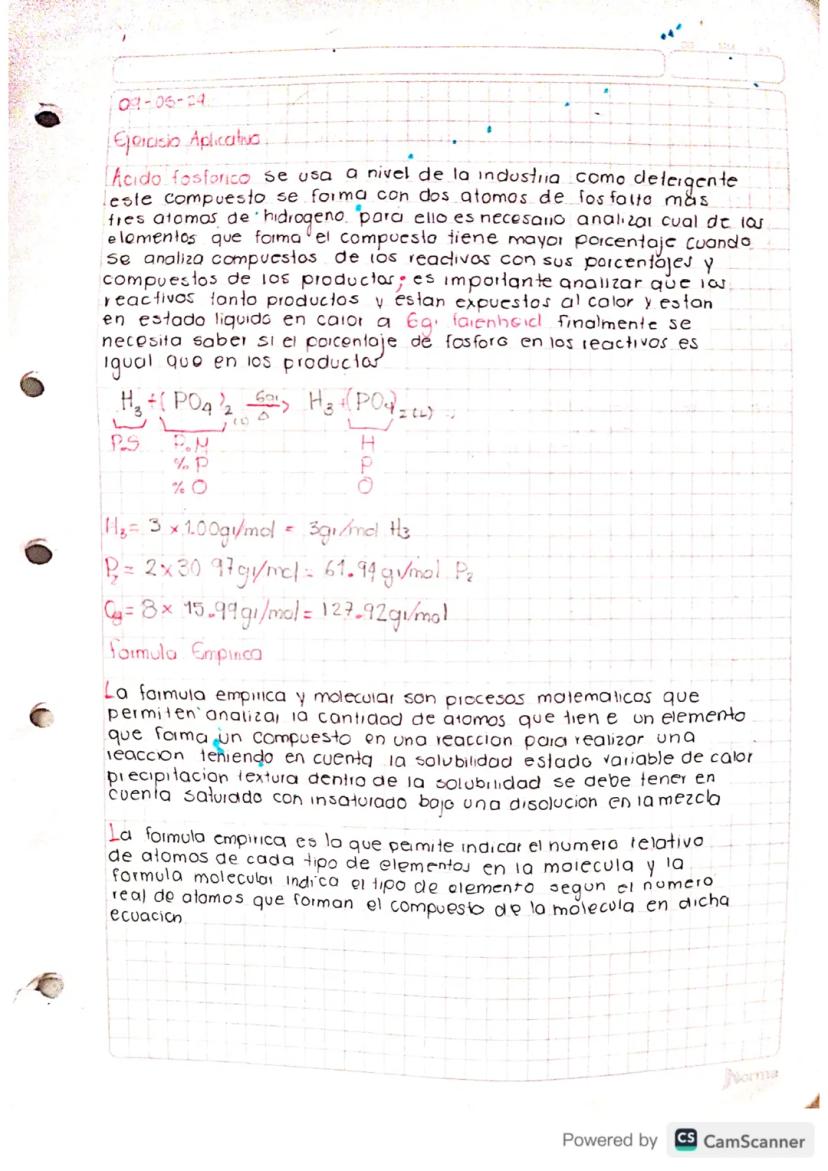 09-05-24
Ejercisio Aplicativo.
Acido fosforico se usa a nivel de la industria como detergente
este compuesto se forma con dos atomos de fosfato mas
tres atomos de hidrogeno para ello es necesario analizar cual de los
elementos que forma el compuesto tiene mayor porcentaje cuando
se analiza compuestos de los reactivos con sus porcentajes y
compuestos de los productos; es importante analizar que los
reactivos tanto productos y estan expuestos al calor y estan
en estado liquido en calor a 6gr farenheid finalmente se
necesita saber si el porcentaje de fosforo en los reactivos es
igual que en los productos
H3 + (PO4)2 (L) 6gr Δ → H3 + (PO4)2 (L)
P.S P.M H
% P P
% O O
H3 = 3 x 1.00gr/mol = 3gr/mol H3
P2 = 2 x 30.97gr/mol = 61.94gr/mol P2
O8 = 8 x 15.99gr/mol = 127.92gr/mol
Formula Empirica
La formula empirica y molecular son procesos matematicos que
permiten analizar la cantidad de atomos que tiene un elemento
que forma un compuesto en una reaccion para realizar una
reaccion teniendo en cuenta la solubilidad estado variable de calor
precipitacion textura dentro de la solubilidad se debe tener en
cuenta saturado con insaturado bajo una disolucion en la mezcla
La formula empirica es la que permite indicar el numero relativo
de atomos de cada tipo de elementos en la molecula y la
formula molecular indica el tipo de elemento segun el numero
real de atomos que forman el compuesto de la molecula en dicha
ecuacion
Norma
Powered by CS CamScanner